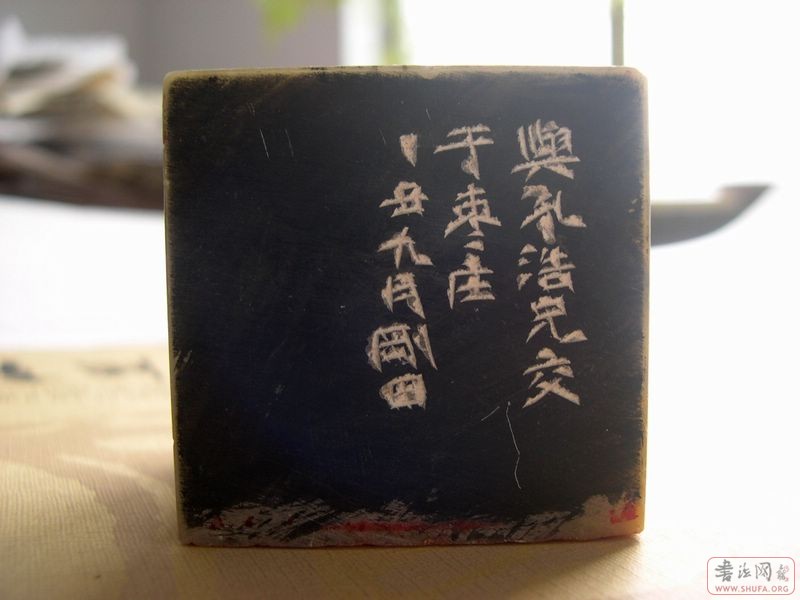 與孔浩兄交
于枣庄
丁丑九月剛田
書法网
WWW.SHUFA.ORG